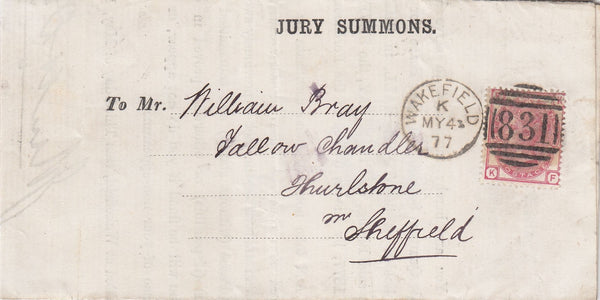 JURY SUMMONS.
To Mr. William Bray
Tallow Chandler
Thurlstone
nr Sheffield
WAKEFIELD
K
MY 4
77
831
POSTAGE
K F